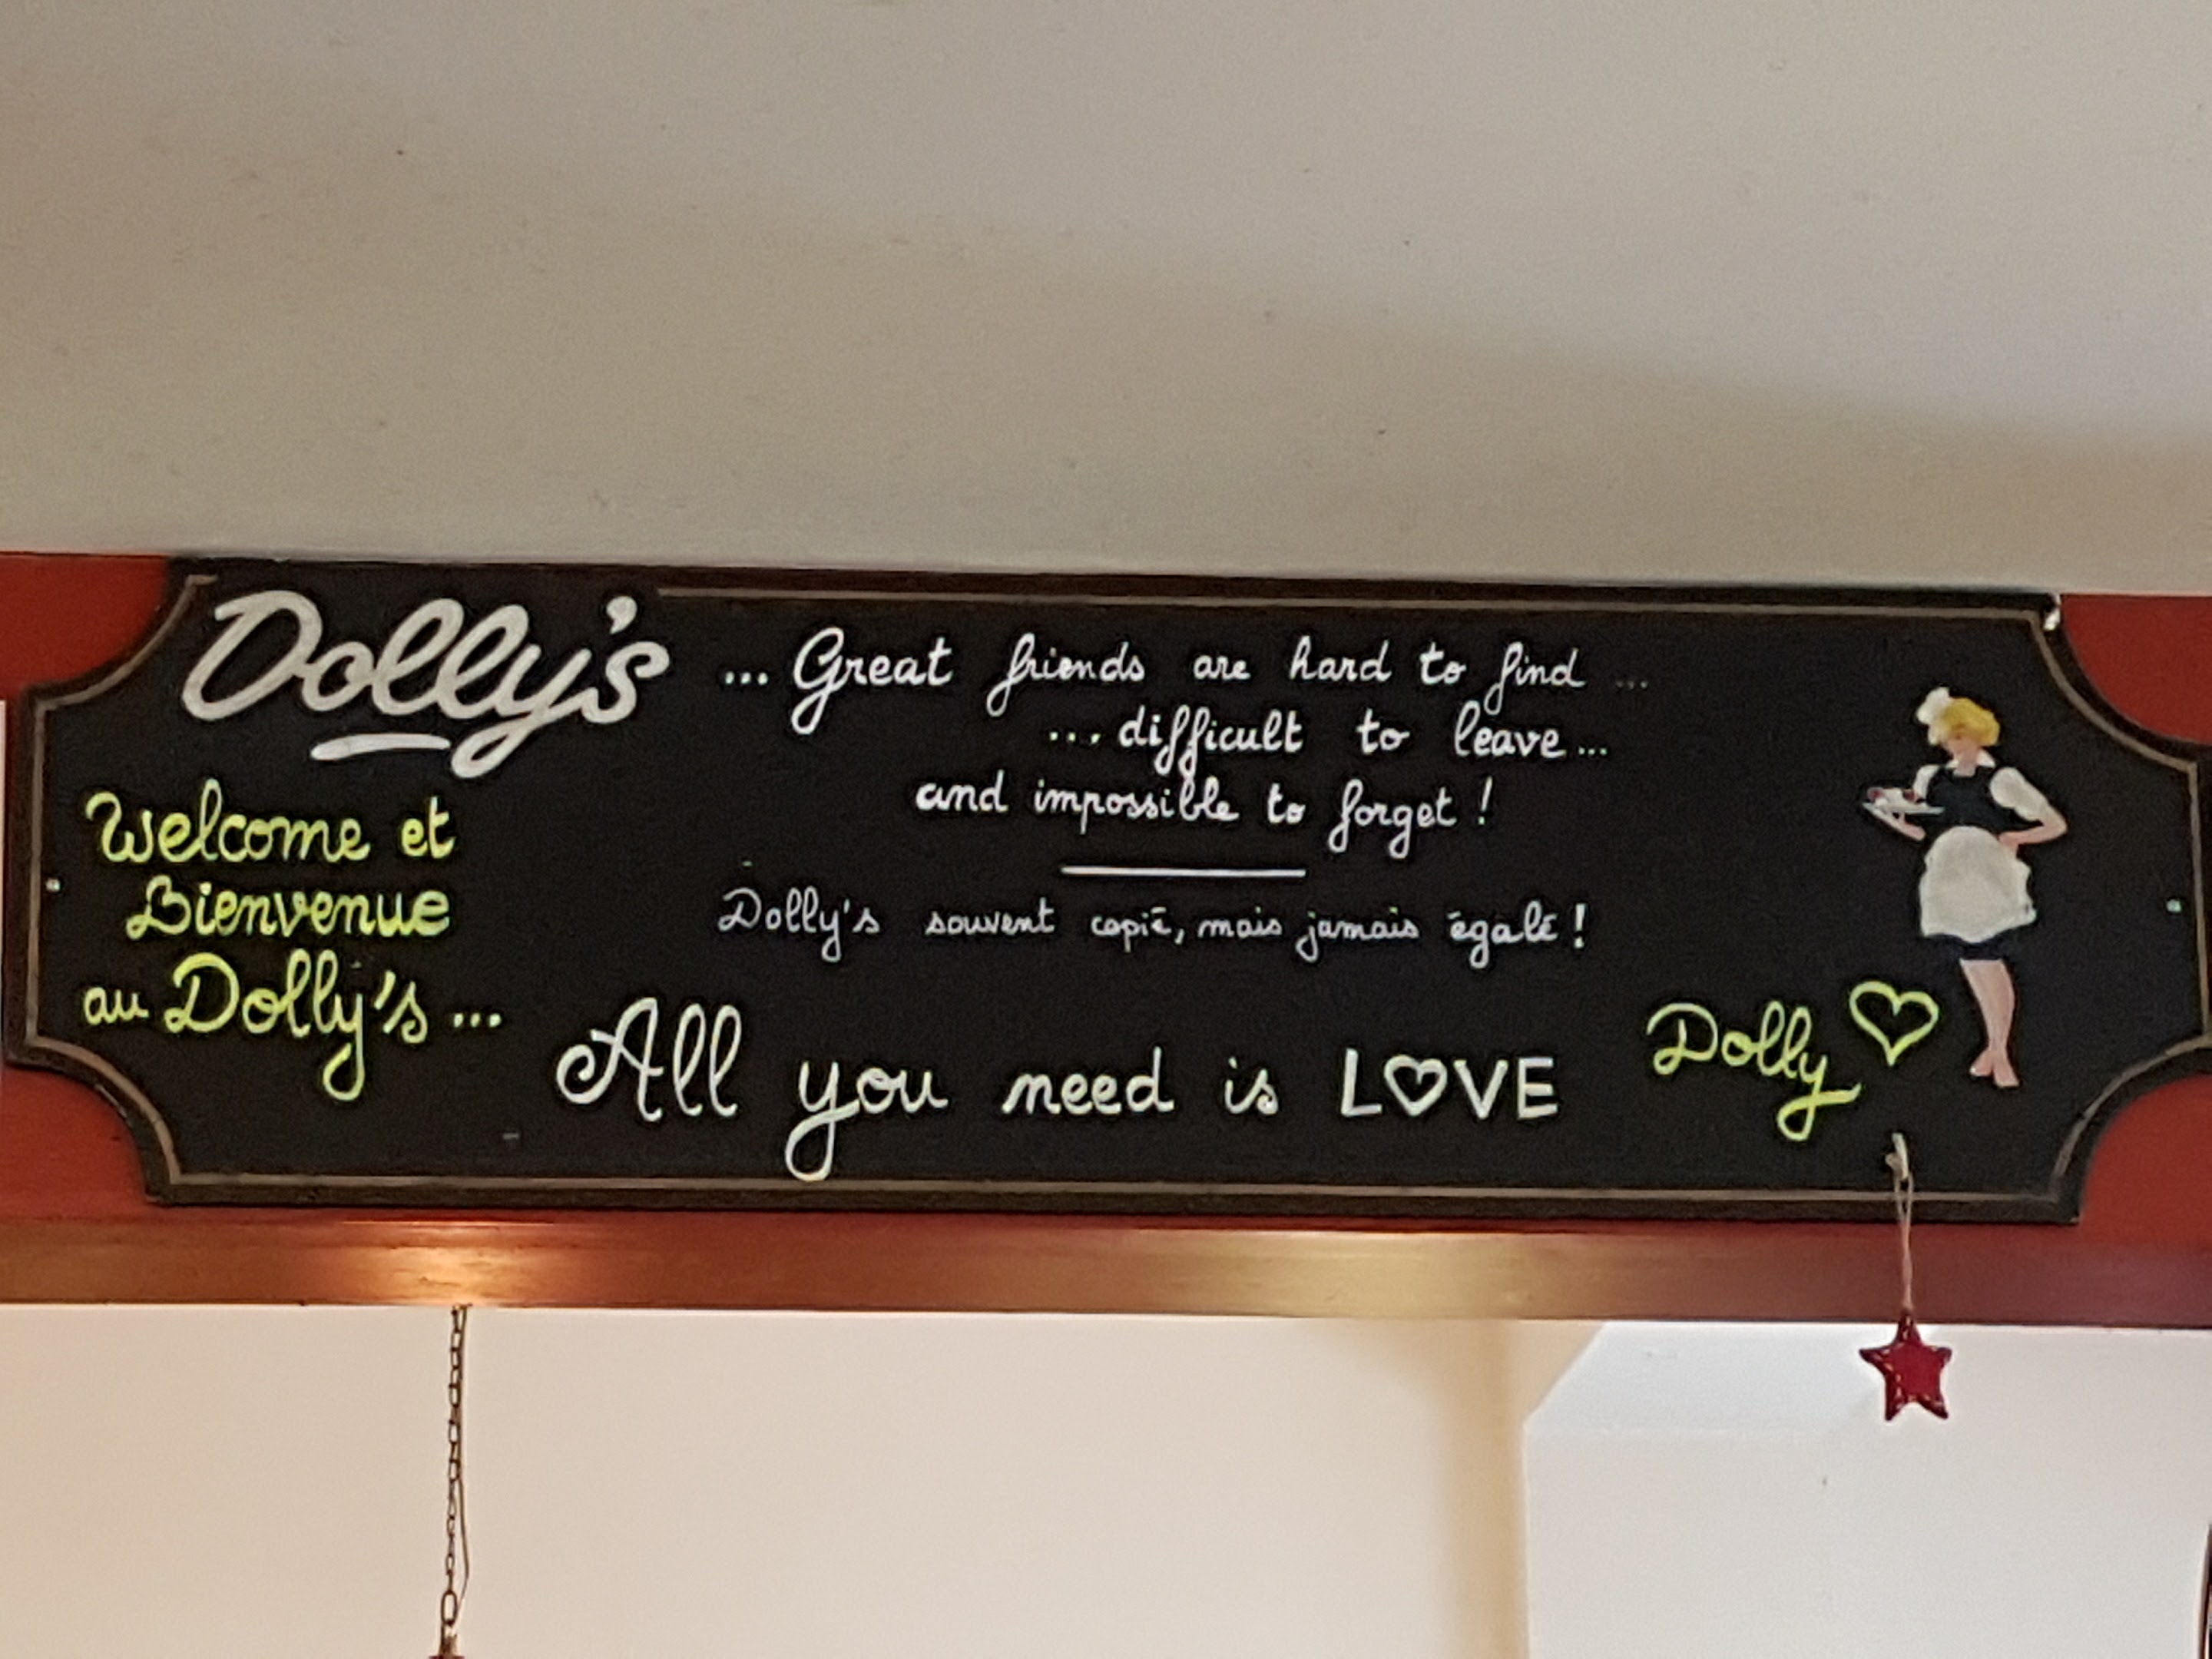 Dolly's
... Great friends are hard to find ...
... difficult to leave ...
and impossible to forget !
Welcome et
Bienvenue
au Dolly's ...
Dolly's souvent copié, mais jamais égalé !
All you need is L♡VE
Dolly ♡